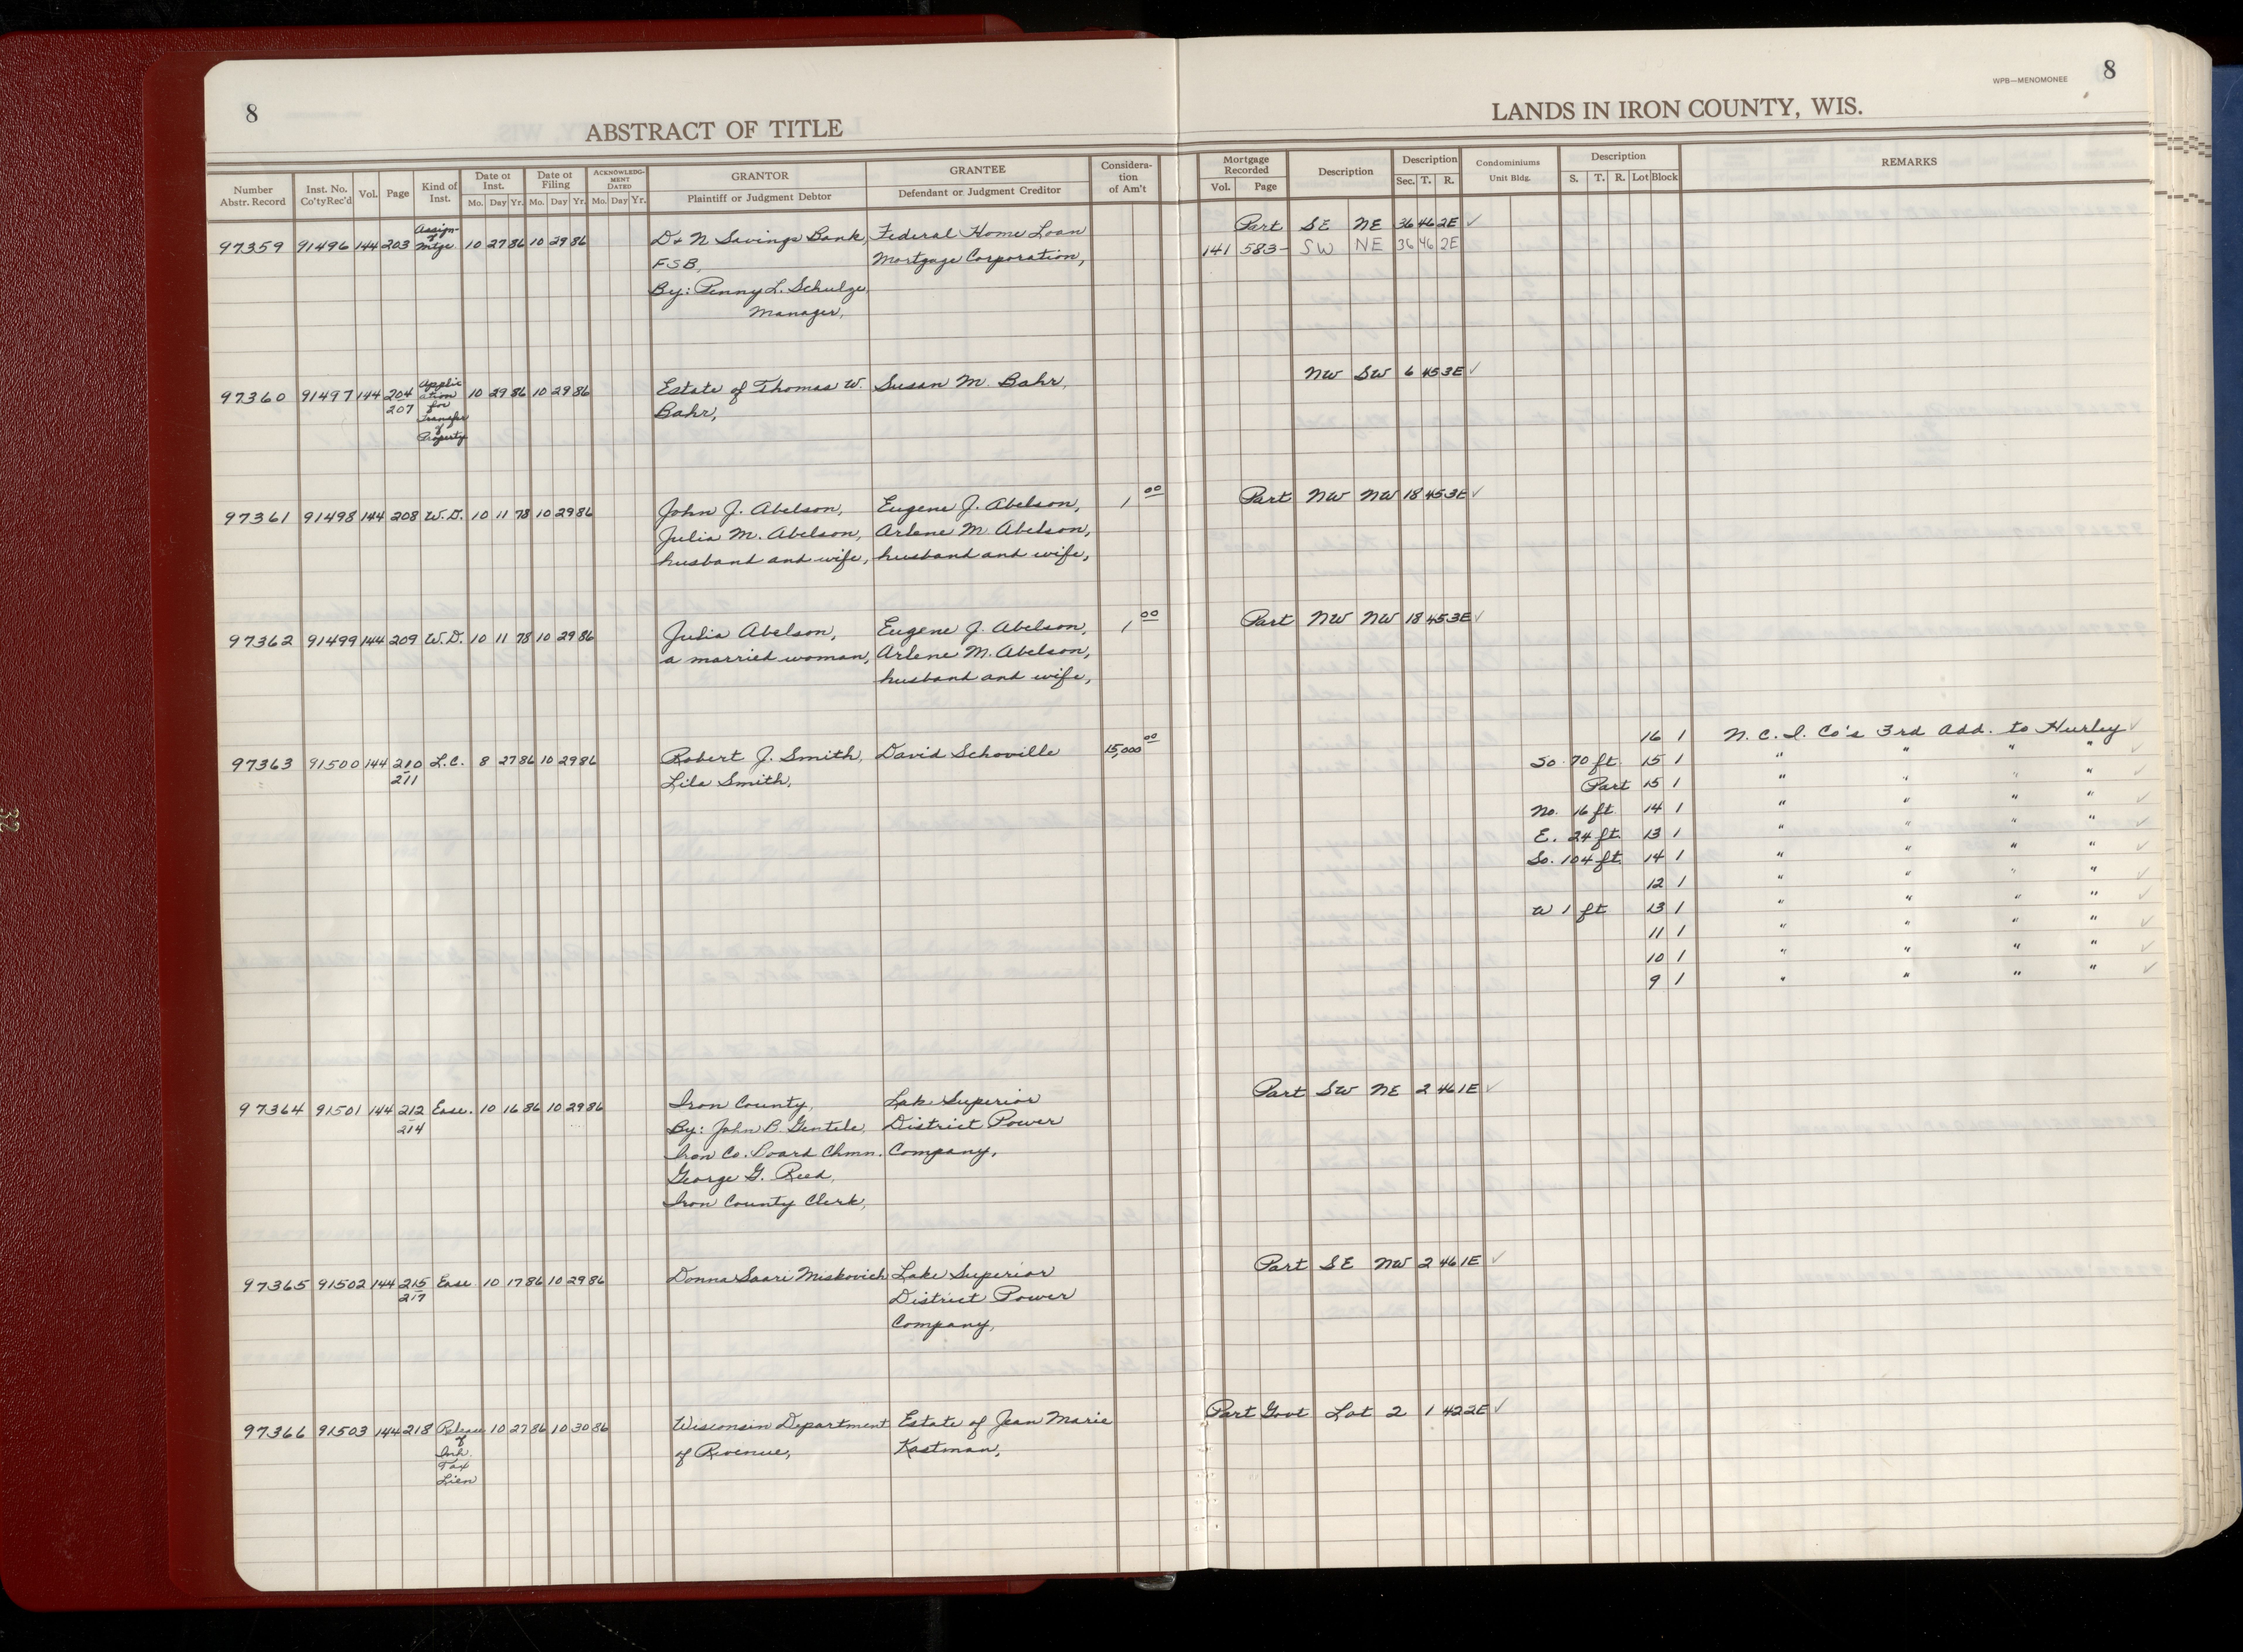 8
ABSTRACT OF TITLE
LANDS IN IRON COUNTY, WIS.
WPB—MENOMONEE
8
Number Abstr. Record Inst. No. Co'ty Rec'd Vol. Page Kind of Inst. Date of Inst. Mo. Day Yr. Date of Filing Mo. Day Yr. ACKNOWLEDGMENT DATED Mo. Day Yr. GRANTOR Plaintiff or Judgment Debtor GRANTEE Defendant or Judgment Creditor Consideration of Am't Mortgage Recorded Vol. Page Description Description Sec. T. R. Condominiums Unit Bldg. Description S. T. R. Lot Block REMARKS
Part SE NE 36 46 2E ✓
97359 91496 144 203 Assign- of Mtge. 10 27 86 10 29 86 D & N Savings Bank, Federal Home Loan 141 583- SW NE 36 46 2E
FSB, Mortgage Corporation,
By: Penny L. Schulze,
Manager,
97360 91497 144 204 Applic ation for Transfer of Property 10 29 86 10 29 86 Estate of Thomas W. Susan M. Bahr, NW SW 6 45 3E ✓
207 Bahr,
97361 91498 144 208 W.D. 10 11 78 10 29 86 John J. Abelson, Eugene J. Abelson, 1 00 Part NW NW 18 45 3E ✓
Julia M. Abelson, Arlene M. Abelson,
husband and wife, husband and wife,
97362 91499 144 209 W.D. 10 11 78 10 29 86 Julia Abelson, Eugene J. Abelson, 1 00 Part NW NW 18 45 3E ✓
a married woman, Arlene M. Abelson,
husband and wife,
97363 91500 144 210 L.C. 8 27 86 10 29 86 Robert J. Smith, David Schoville 15,000 00 16 1 N. C. I. Co's 3rd Add. to Hurley ✓
211 Lila Smith, So. 70 ft. 15 1 " " " " ✓
Part 15 1 " " " " ✓
No. 16 ft. 14 1 " " " " ✓
E. 24 ft. 13 1 " " " " ✓
So. 104 ft. 14 1 " " " " ✓
12 1 " " " " ✓
W 1 ft 13 1 " " " " ✓
11 1 " " " " ✓
10 1 " " " " ✓
9 1 " " " " ✓
97364 91501 144 212 Ease. 10 16 86 10 29 86 Iron County, Lake Superior Part SW NE 2 46 1E ✓
214 By: John B. Gentile, District Power
Iron Co. Board Chmn. Company,
George G. Reed,
Iron County Clerk,
97365 91502 144 215 Ease 10 17 86 10 29 86 Donna Saari Miskovich Lake Superior Part SE NW 2 46 1E ✓
217 District Power
Company,
97366 91503 144 218 Release of Inh. Tax Lien 10 27 86 10 30 86 Wisconsin Department Estate of Jean Marie Part Govt Lot 2 1 42 2E ✓
of Revenue, Kastman,
32